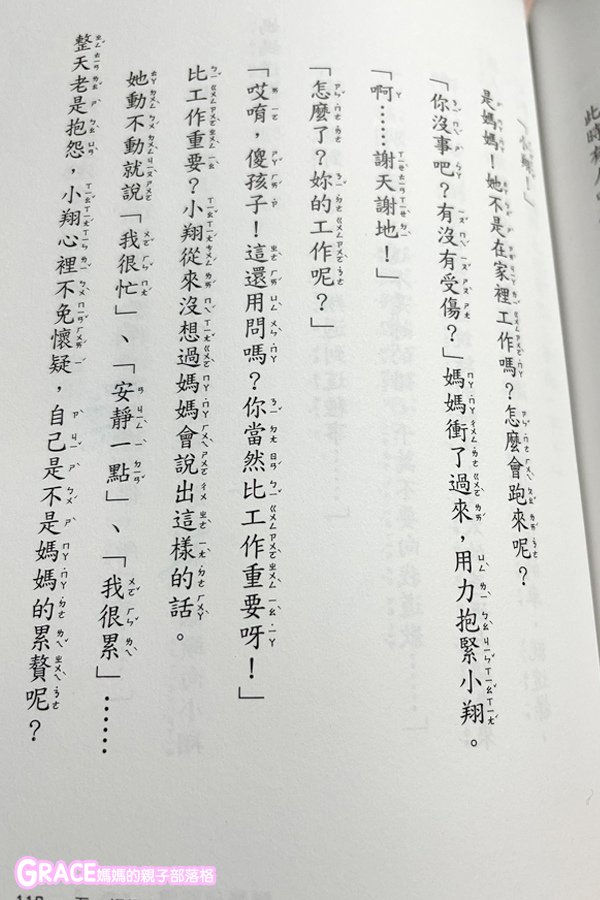 此時有人
「小翔！」
是媽媽！她不是在家裡工作嗎？怎麼會跑來呢？
「你沒事吧？有沒有受傷？」媽媽衝了過來，用力抱緊小翔。
「啊……謝天謝地！」
「怎麼了？妳的工作呢？」
「哎唷，傻孩子！這還用問嗎？你當然比工作重要呀！」
比工作重要？小翔從來沒想過媽媽會說出這樣的話。
她動不動就說「我很忙」、「安靜一點」、「我很累」……
整天老是抱怨，小翔心裡不免懷疑，自己是不是媽媽的累贅呢？
GRACE媽媽的親子部落格